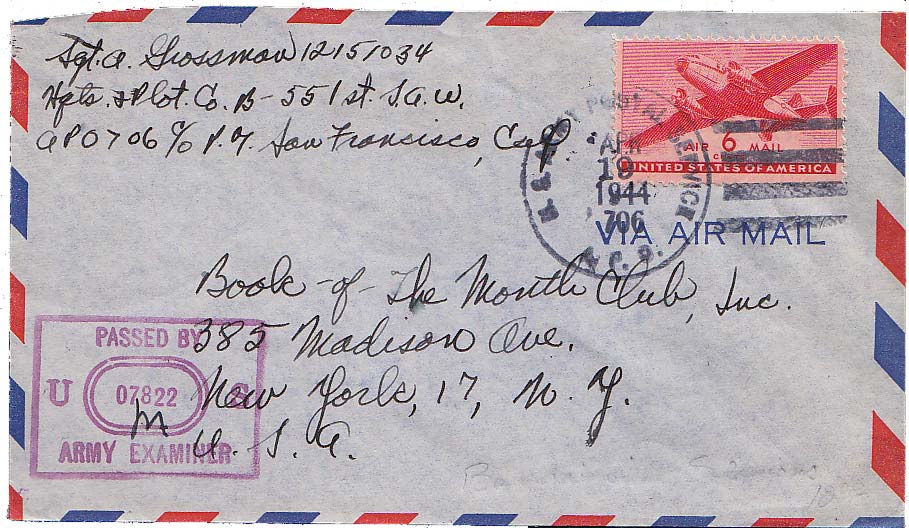 Sgt. A. Grossman 12151034
Hqts. & Plot. Co. B - 551st. S.A.W.
APO 706 c/o P.M. San Francisco, Cal
AIR 6 MAIL
CENTS
UNITED STATES OF AMERICA
U.S. ARMY POSTAL SERVICE
APR
19
1944
706
A.P.O.
VIA AIR MAIL
Book-of-The Month Club, Inc.
385 Madison Ave.
New York, 17, N.Y.
U.S.A.
PASSED BY
U 07822 S
M
ARMY EXAMINER